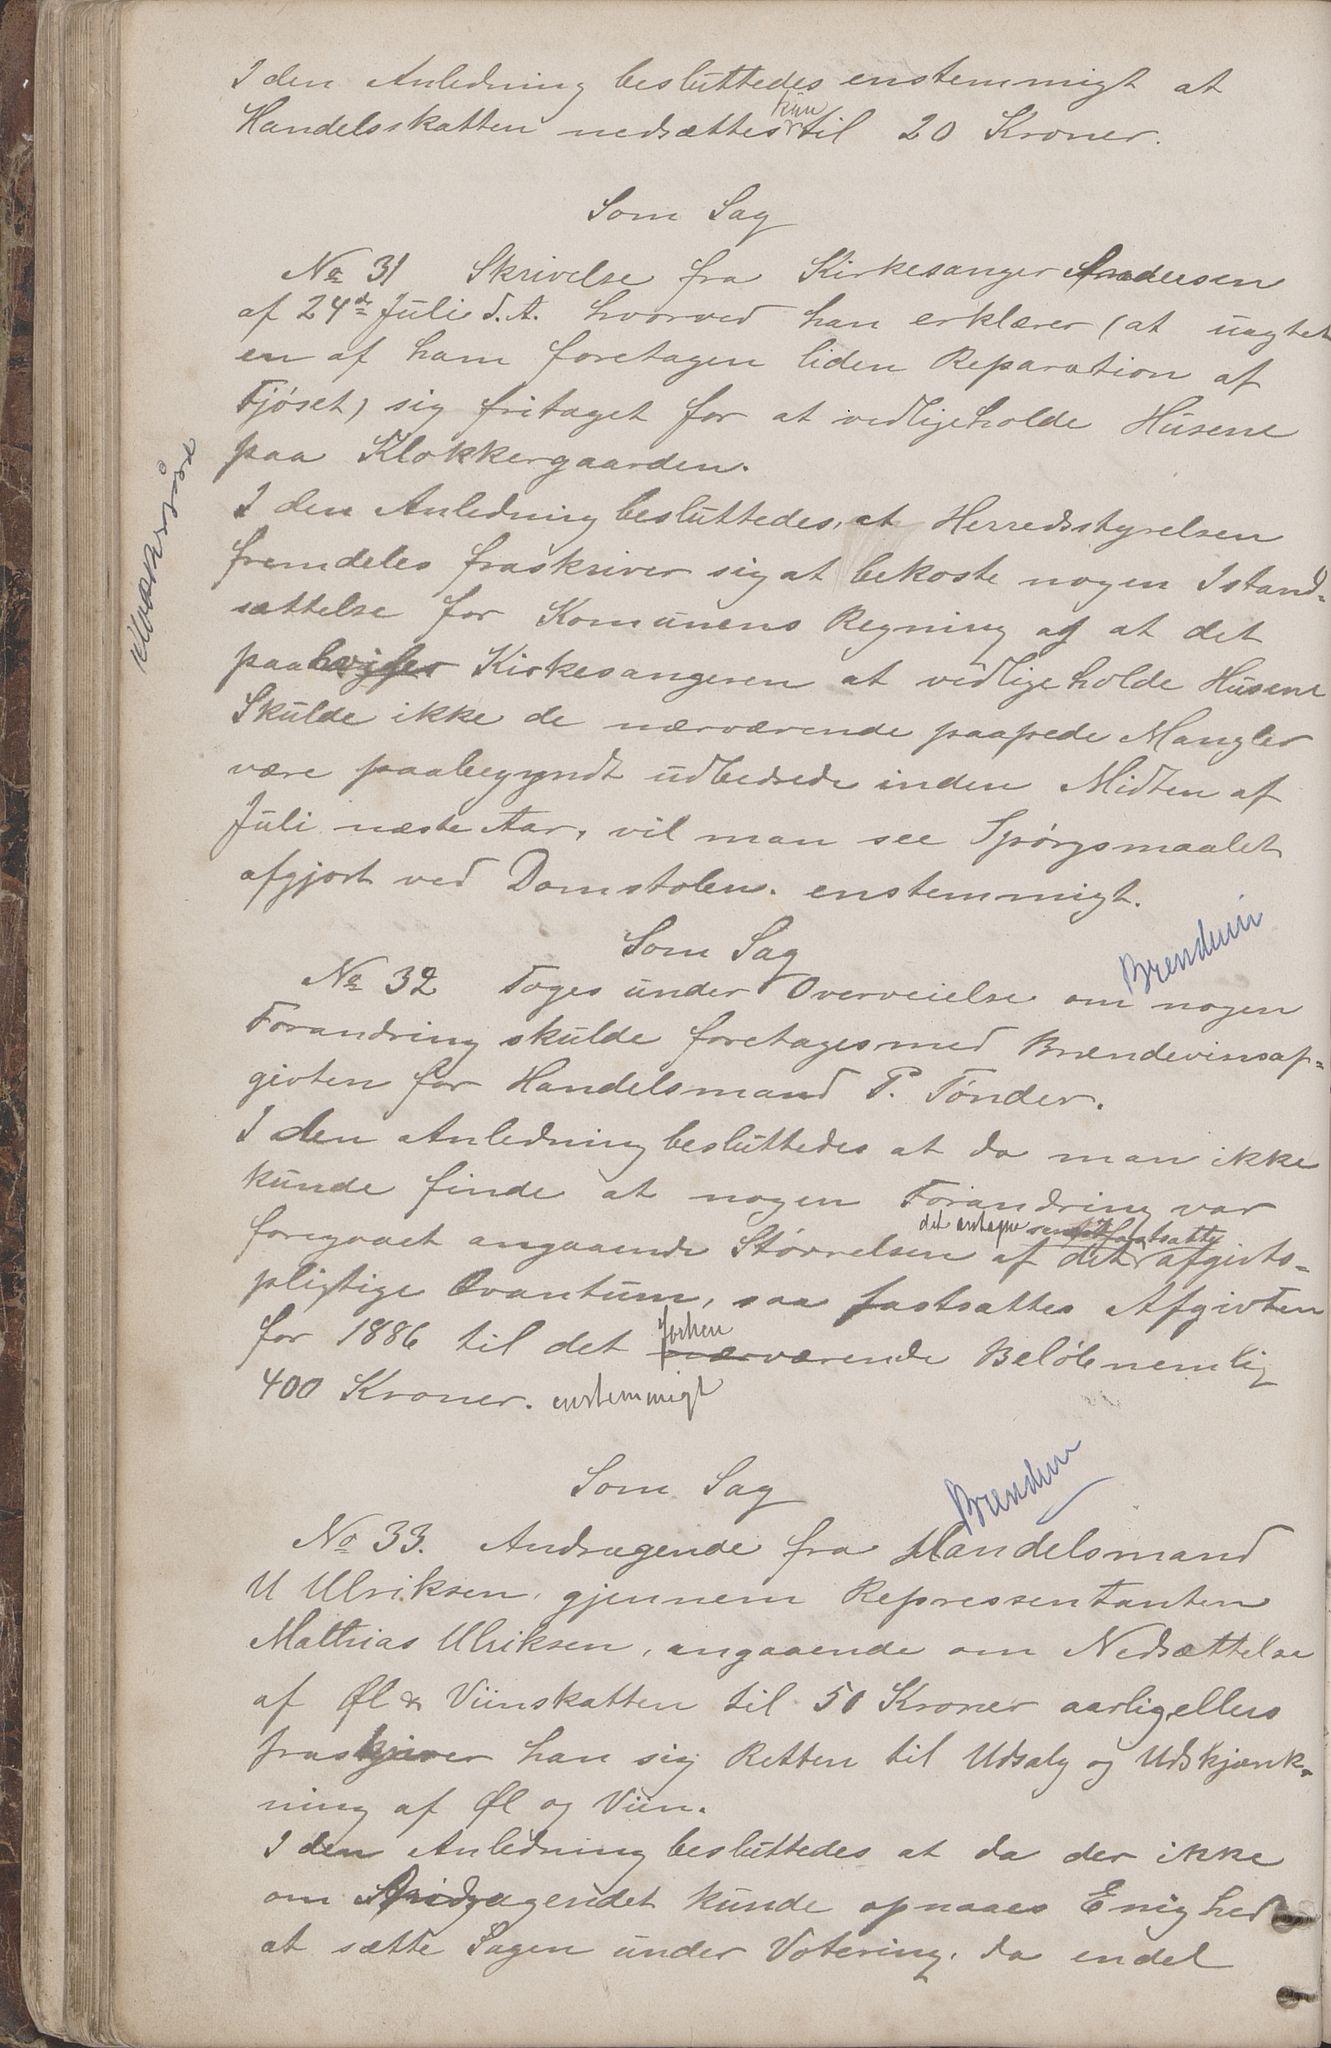 I den Anledning besluttedes enstemmigt at
Handelsskatten nedsættes kun til 20 Kroner.
Som Sag
No 31 Skrivelse fra Kirkesanger Andersen
af 24de Juli d.A. hvorved han erklærer (at uagtet
en af ham foretagen liden Reparation af
Fjøset) sig fritaget for at vedligeholde Husene
paa Klokkergaarden.
I den Anledning besluttedes, at Herredsstyrelsen
fremdeles fraskriver sig at bekoste nogen Istand-
sættelse for Komunens Regning og at det
paahviler Kirkesangeren at vedligeholde Husene
Skulde ikke de nærværende paapede Mangler
være paabegyndt udbedrede inden Midten af
Juli næste Aar, vil man see Spørgsmaalet
afgjort ved Domstolen. enstemmigt.
Brendeviin
Som Sag
No 32 Toges under Overveielse om nogen
Forandring skulde foretages med Brændevinsaf-
givten for Handelsmand P. Tønder.
I den Anledning besluttedes at da man ikke
kunde finde at nogen Forandring var
foregaaet angaaende Størrelsen af det afgivts-
pligtige Qvantum, saa fastsattes Afgivten
for 1886 til det forhen nærværende Beløb nemlig
400 Kroner. enstemmigt
Brendeviin
Som Sag
No 33. Andragende fra Handelsmand
U Ulriksen, gjennem Repressentanten
Mathias Ulriksen, angaaende om Nedsættelse
af Øl & Viinskatten til 50 Kroner aarlig, ellers
fraskriver han sig Retten til Udsalg og Udskjænk-
ning af Øl og Viin.
I den Anledning besluttedes at da der ikke
om Andragendet kunde opnaaes Enighed
at sætte Sagen under Votering. da endel